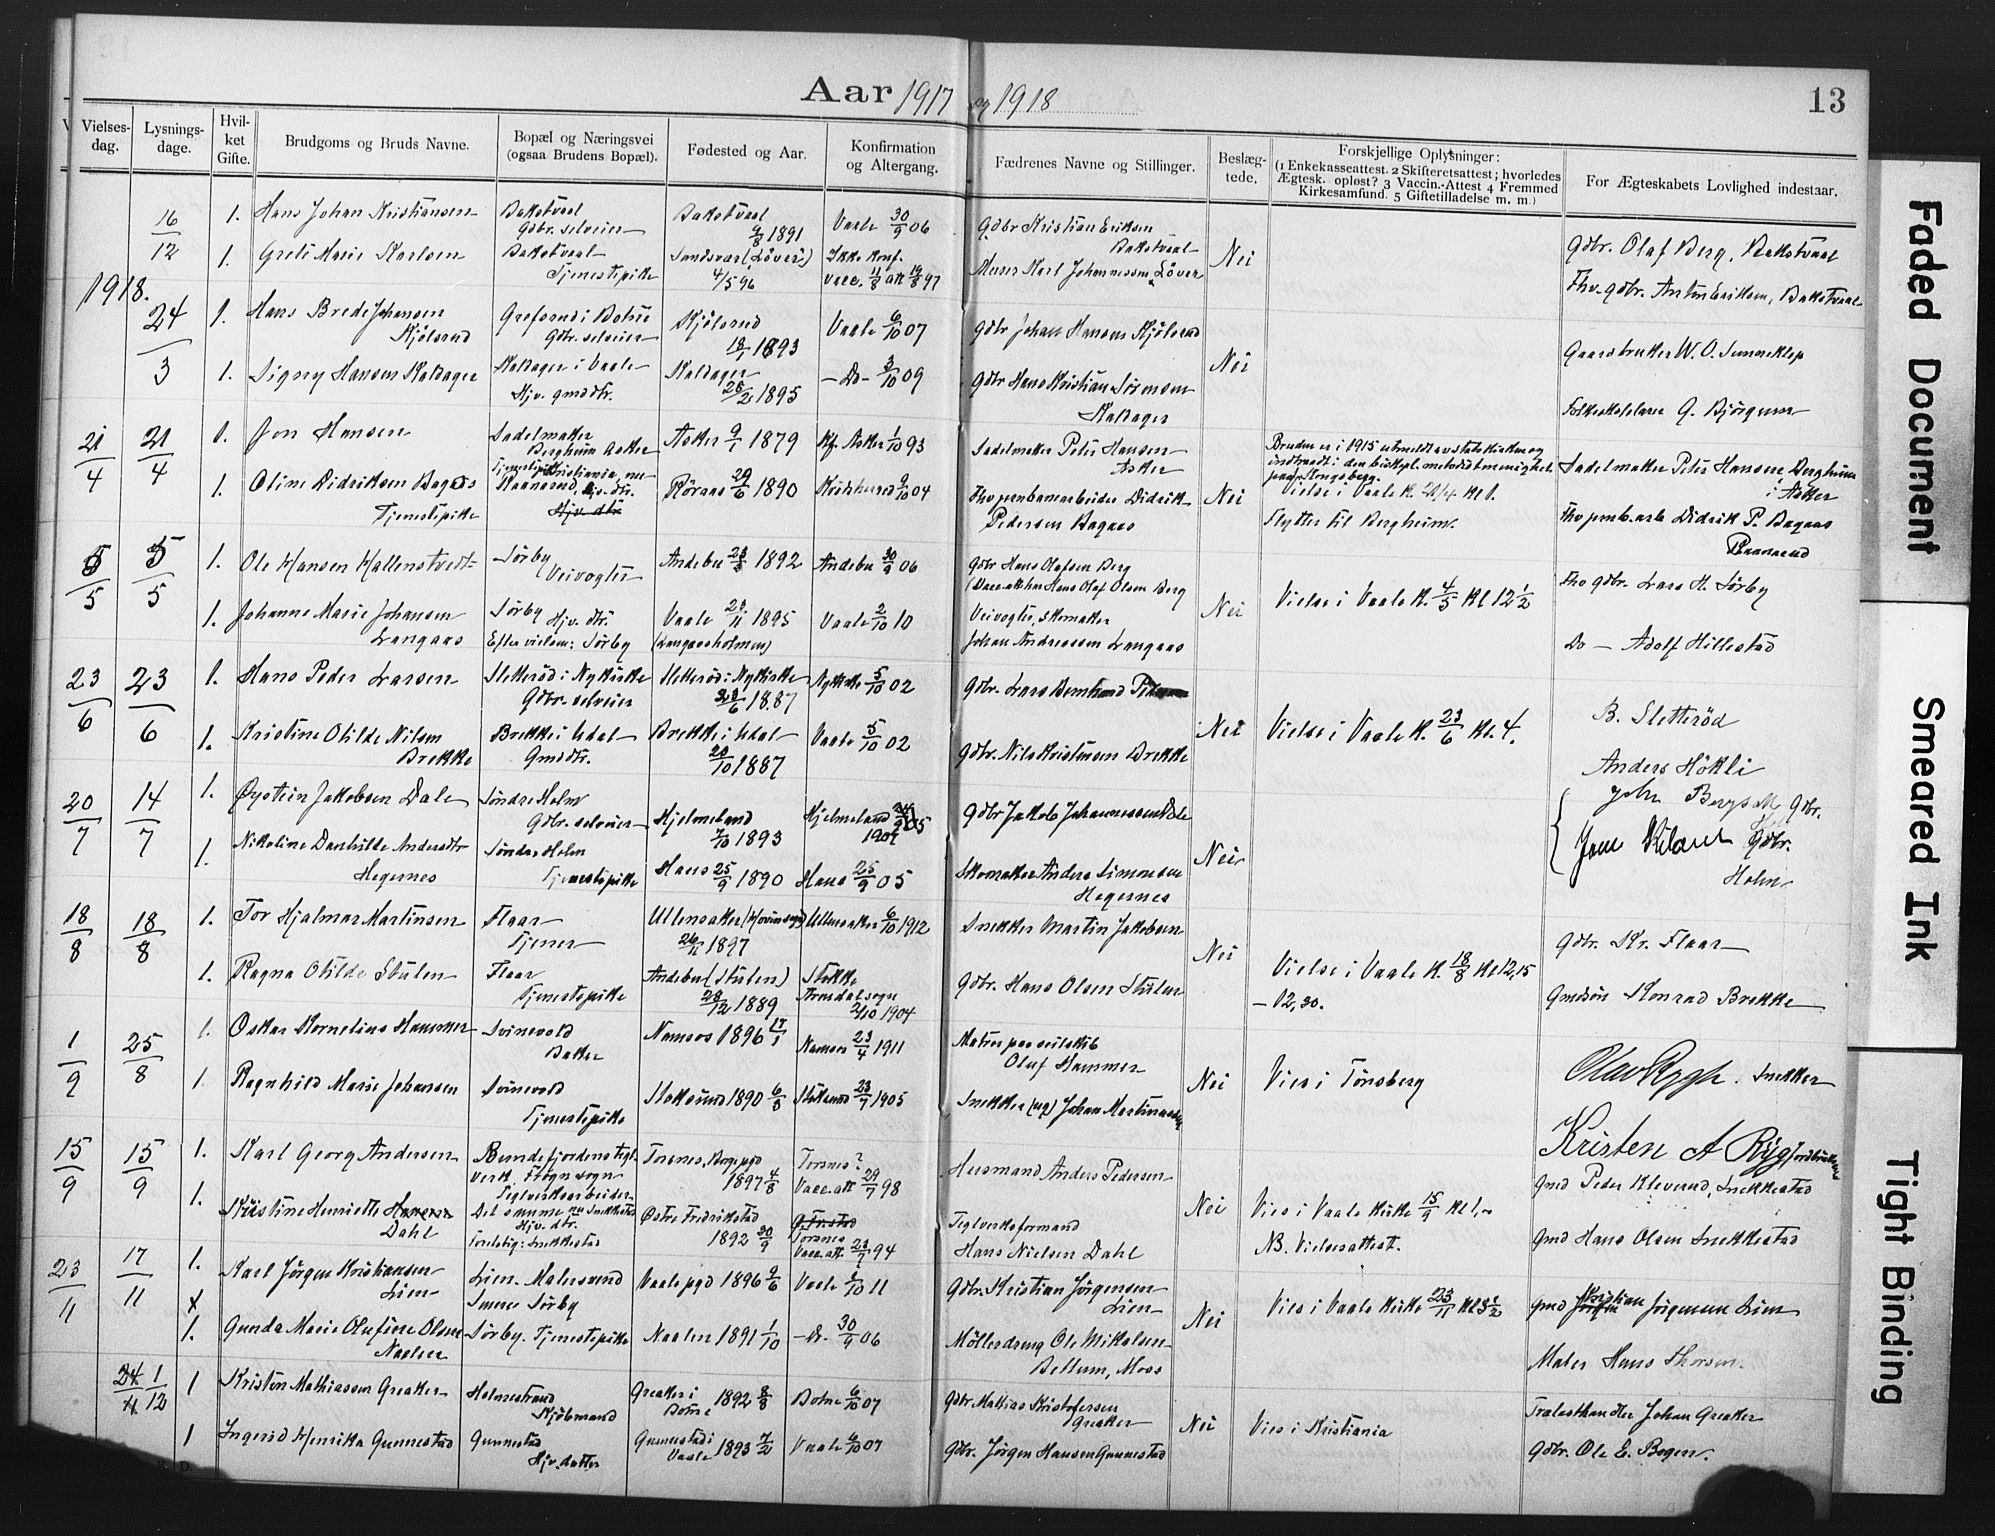 Aar 1917 og 1918
13
Vielses-dag.
Lysnings-dage.
Hvil-ket Gifte.
Brudgoms og Bruds Navne.
Bopæl og Næringsvei (ogsaa Brudens Bopæl).
Fødested og Aar.
Konfirmation og Altergang.
Fædrenes Navne og Stillinger.
Beslæg-tede.
Forskjellige Oplysninger: (1 Enkekasseattest. 2 Skifteretsattest; hvorledes Ægtesk. opløst? 3 Vaccin.-Attest 4 Fremmed Kirkesamfund. 5 Giftetilladelse m. m.)
For Ægteskabets Lovlighed indestaar.
16/12 1. Hans Johan Kristiansen Bakstvaal Gdbr. selveier Bakstvaal 1891 Vaale 30/9 06 Gdbr Kristian Eriksen Bakstvaal Nei Gdbr. Olaf Berg, Bakstvaal
1. Grete Marie Karlsen Bakstvaal Tjenestepike Sandsvær (Löver) 4/5 96 Ikke konf. vacc. 11/8 att 19/8 97 Murer Karl Johannessen Löver Fhv. gdbr. Anton Eriksen, Bakstvaal
1918.
24/3 1. Hans Brede Johansen Kjölsrud Grefsrud i Botne Gdbr. selveier Kjölsrud 1893 Vaale 6/10 07 Gdbr Johan Hansen Kjölsrud Nei Gaardbruker W. O. Sunneklep
1. Signy Hansen Kaldager Kaldager i Vaale Hjv. gmddtr. Kaldager 26/2 1895 - Do - 3/10 09 Gdbr Hans Kristian Sörensen Kaldager Folkeskolelærer G. Bjørgum
21/4 21/4 1. Jon Hansen Sadelmaker Bergheim Asker Asker 9/1 1879 Kf. Asker 1/10 93 Sadelmaker Peter Hansen Asker Bruden er i 1915 utmeldt av statskirken og indtraadt i den biskopl. metodistmenighet paa Kongsberg. Sadelmaker Peter Hansen Bergheim i Asker
1. Oline Didriksen Bagaas Tjenestepike Tjenestepike Kristiania, nu Raanerud, Hjv. dtr. Röraas 29/6 1890 9/10 04 Fhv jernbanearbeider Didrik Pedersen Bagaas Nei Vielse i Vaale K. 21/4 Kl 1. Flytter til Bergheim. Fhv jernb.arb. Didrik P. Bagaas Raanerud
5/5 5/5 1. Ole Hansen Hallenstvedt Sörby Veivogter Andebu 23/3 1892 Andebu 30/9 06 Gdbr Hans Olafsen Berg (Vacc.att. her Hans Olaf Olsen Berg Nei Vielse i Vaale K. 4/5 Kl 12 1/2 Fhv gdbr. Lars H. Sörby
1. Johanne Marie Johansen Langaas Sörby Hjv. dtr. Efter vielsen: Sörby Vaale 23/11 1895 (Langaasholmen) Vaale 2/10 10 Veivogter, Skomaker Johan Andreassen Langaas Do - Adolf Hillestad
23/6 23/6 1. Hans Peder Larsen Sletteröd i Nykirke Gdbr. selveier Sletteröd i Nykirke 23/6 1887 Nykirke 5/10 02 Gdbr. Lars Bernhard Nei Vielse i Vaale K. 23/6 Kl. 4. B. Sletteröd
1. Kristine Otilde Nilsen Brekke Brekke i Udal Gmddtr. Brekke i Udal 20/10 1887 Vaale 5/10 02 Gdbr. Nils Kristensen Brekke Anders Hökli
20/7 14/7 1. Øystein Jakobsen Dale Söndre Holm Gdbr. selveier Hjelmeland 1893 Hjelmeland 1909 Gdbr Jakob Johannessen Dale Nei John Gdbr.
1. Nikoline Danhilde Andersdtr Hegernes Söndre Holm Tjenestepike Haus 25/9 1890 Haus 25/9 05 Skomaker Anders Simonsen Hegernes Gdbr. Holm
18/8 18/8 1. Tor Hjalmar Martinsen Flaar Tjener Ullensaker (Hovin sogn) 1897 Ullensaker 6/10 1912 Snekker Martin Jakobsen Nei Vielse i Vaale K. 18/8 Kl 12,15 - 12,30. Gdbr. Kr. Flaar
1. Ragna Otilde Stulen Flaar Tjenestepike Andebu (Stulen) 28/12 1889 Stokke Arnadal sogn 2/10 1904 Gdbr. Hans Olsen Stulen Gmdsön Konrad Brekke
1/9 25/8 1. Oskar Kornelius Hammer Svinevold Baker Namsos 1896 17/1 Namsos 23/4 1911 Matros paa seilskib Oluf Hammer Nei Vies i Tönsberg Olav Rygh. Snekker
1. Ragnhild Marie Johansen Svinevold Tjenestepike Stoksund 1890 6/3 Stoksund 23/7 1905 Snekker (ug) Johan Martinussen Kristen A Rygh
15/9 15/9 1. Karl Georg Andersen Bundefjordens tegl-verk, Frogn sogn Teglverksarbeider Torsnes, Borge pgd 1897 4/8 Torsnes? Vacc.att 29/7 98 Husmand Anders Pedersen Nei Vies i Vaale kirke 15/9 Kl 1. Gmd Peder Kleverud, Snekkestad
1. Kristine Henriette Hansen Dahl Det samme nu Snekkestad Hjv. dtr. Östre Fredrikstad 1892 30/9 Torsnes Vacc.att. 23/9 94 Teglverksformand Hans Nielsen Dahl NB. Vielsesattest. Gmd Hans Olsen Snekkestad
23/11 17/11 1. Karl Jörgen Kristiansen Lien Lien. Malersvend Senere Sörby Vaale pgd 1896 9/6 Vaale 1/10 11 Gdbr. Kristian Jörgensen Lien Nei Vies i Vaale kirke 23/11 Kl 3 1/2 Gmd Kristian Jörgensen Lien
1. Gunda Marie Olufine Olsen Naalen Sörby. Tjenestepike Naalen 1891 1/10 - Do. 30/9 06 Möllerdreng Ole Mikalsen Bettum, Moss Maler Hans Thorsen.
24/11 1/12 1 Kristen Mathiassen Greaker Holmestrand Kjöbmand Greaker i Botne 1892 8/8 Botne 6/10 07 Gdbr. Mathias Kristofersen Greaker Nei Vies i Kristiania Trælasthandler Johan Greaker
1 Ingerid Henrikka Gunnestad Gunnestad Hjv. datter Gunnestad i Vaale 1893 7/2 Vaale 6/10 07 Gdbr. Jörgen Hansen Gunnestad Gdbr. Ole E. Bogen.
Faded Document
Smeared Ink
Tight Binding